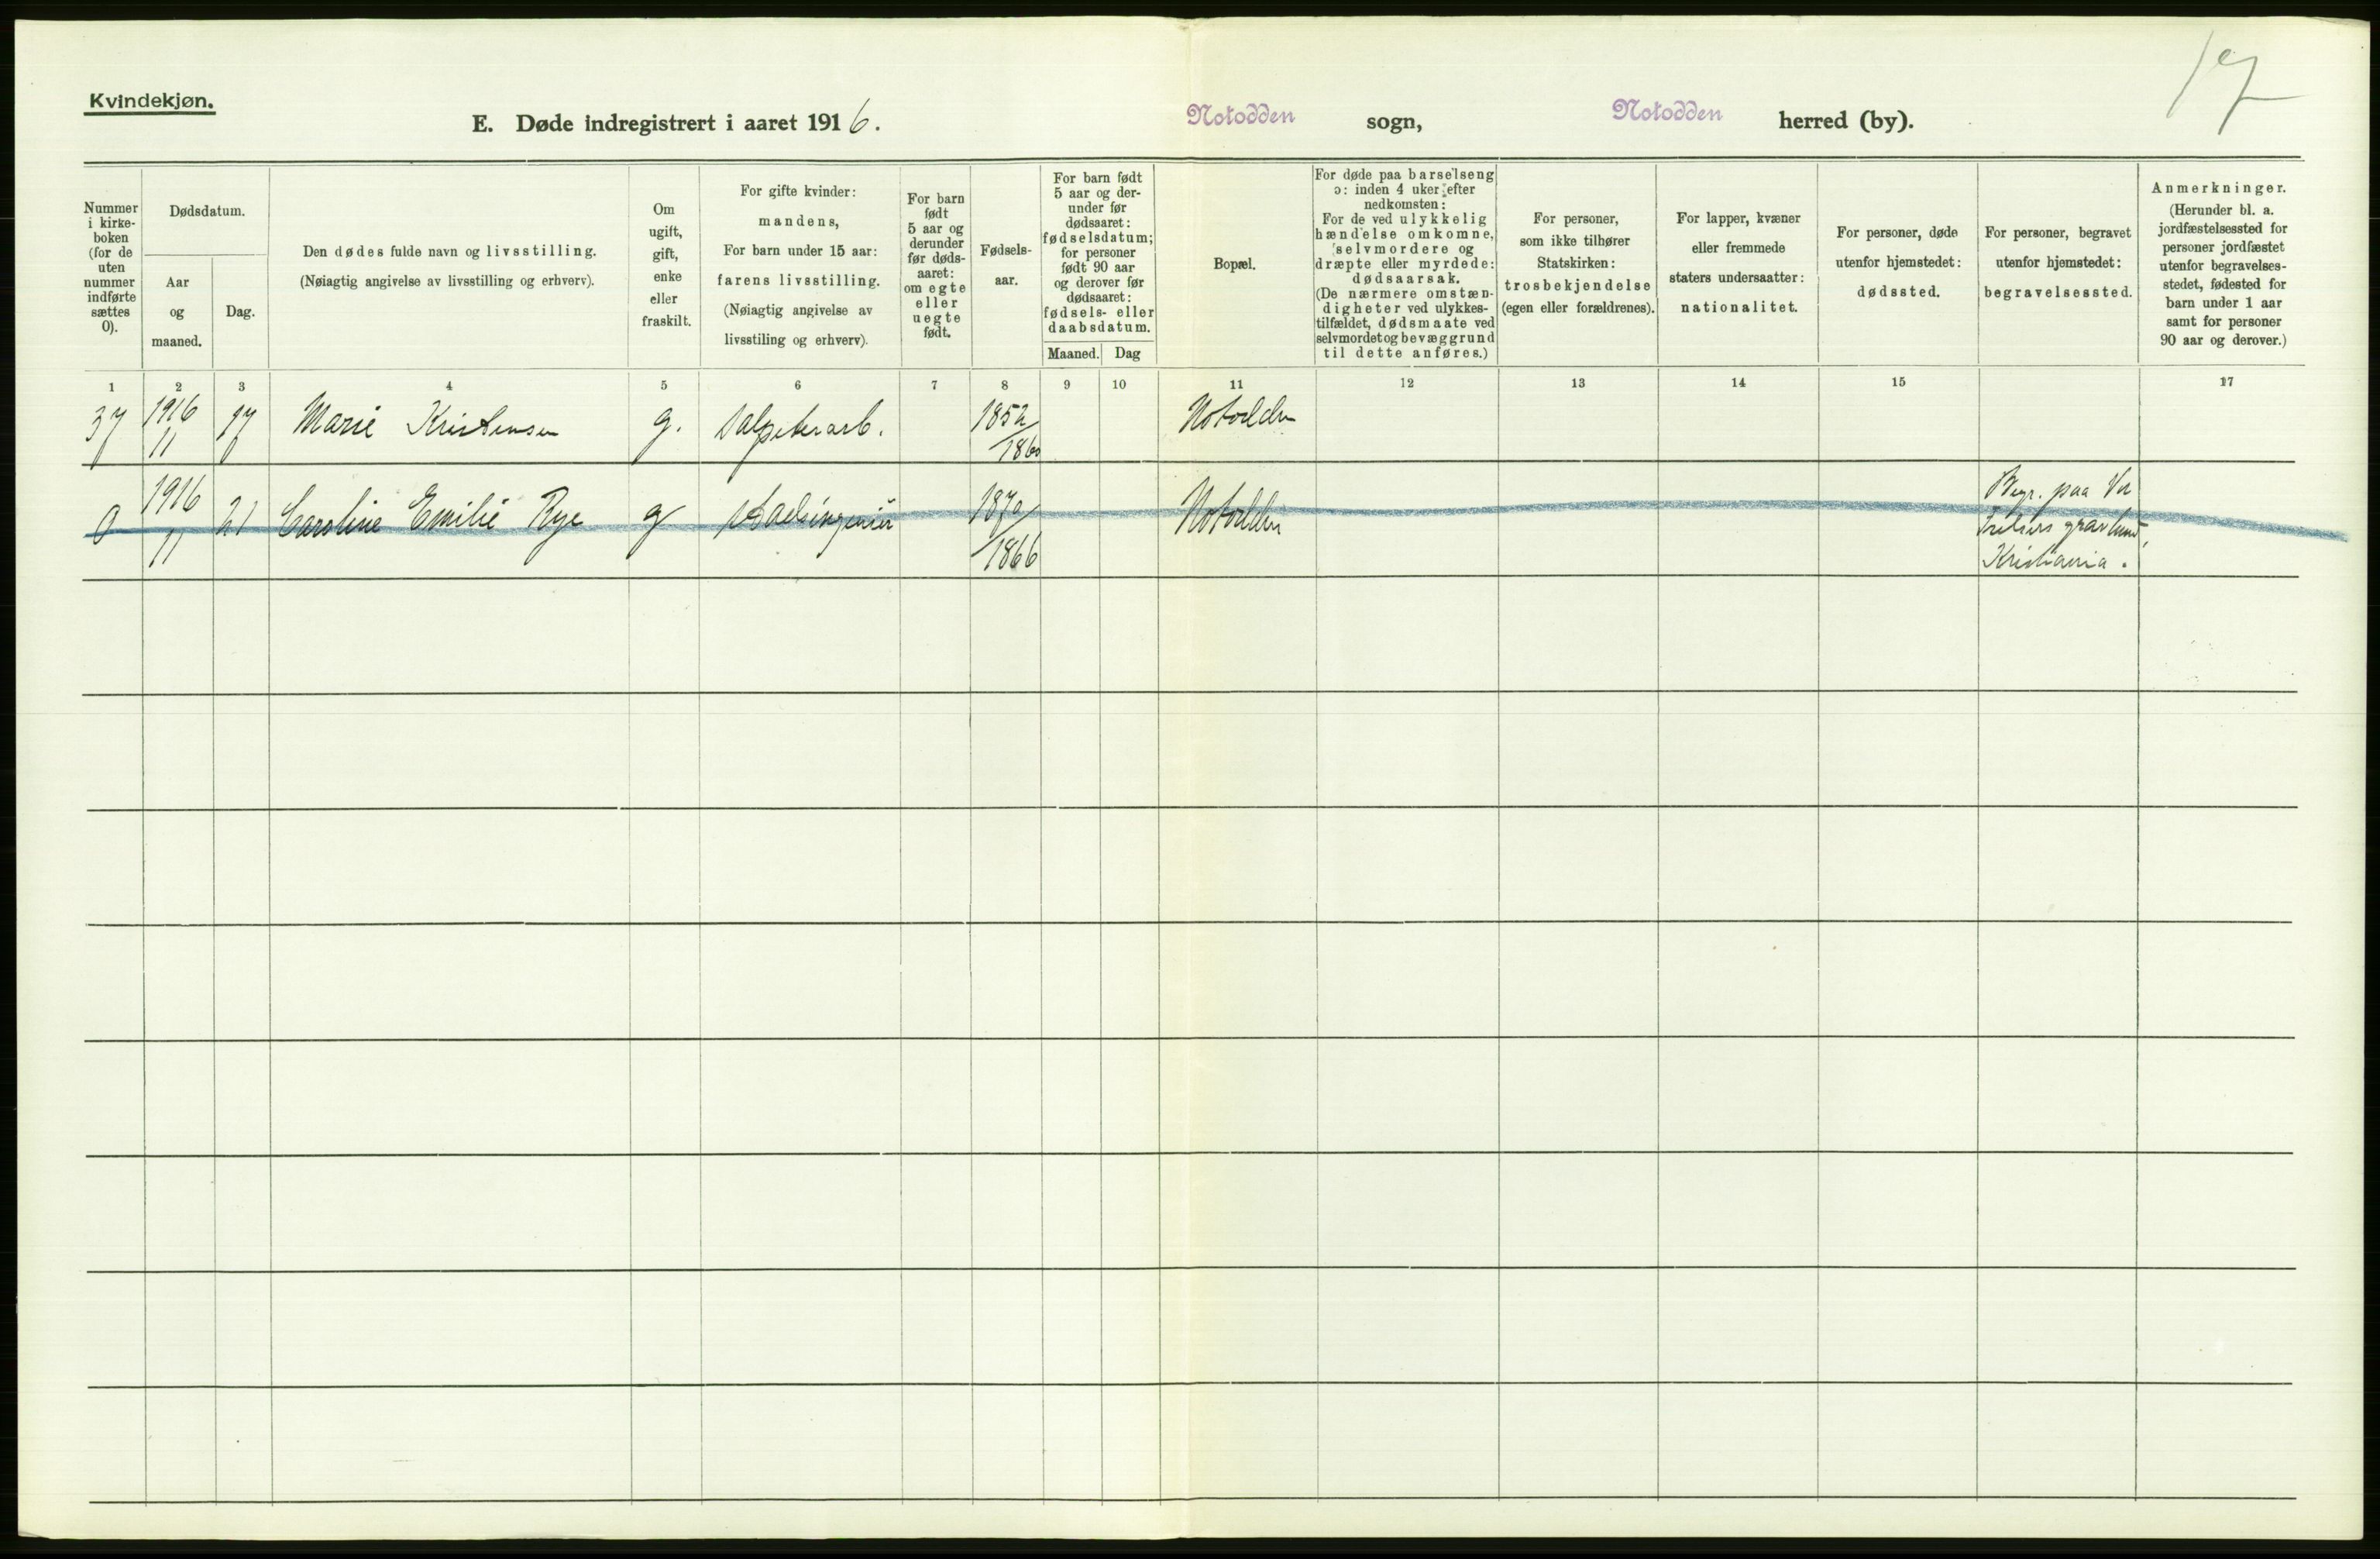 Kvindekjøn.
17
E. Døde indregistrert i aaret 1916. Notodden sogn, Notodden herred (by).
Nummer
i kirke-
boken
(for de
uten
nummer
indførte
sættes
0).
Dødsdatum.
Aar
og
maaned.
Dag.
Den dødes fulde navn og livsstilling.
(Nøiagtig angivelse av livsstilling og erhverv).
Om
ugift,
gift,
enke
eller
fraskilt.
For gifte kvinder:
mandens,
For barn under 15 aar:
farens livsstilling.
(Nøiagtig angivelse av
livsstiling og erhverv).
For barn
født
5 aar og
derunder
før døds-
aaret:
om egte
eller
uegte
født.
Fødsels-
aar.
For barn født
5 aar og der-
under før
dødsaaret:
fødselsdatum;
for personer
født 90 aar
og derover før
dødsaaret:
fødsels- eller
daabsdatum.
Maaned. Dag
Bopæl.
For døde paa barselseng
ɔ: inden 4 uker efter
nedkomsten:
For de ved ulykkelig
hændelse omkomne,
selvmordere og
dræpte eller myrdede:
dødsaarsak.
(De nærmere omstæn-
digheter ved ulykkes-
tilfældet, dødsmaate ved
selvmordet og bevæggrund
til dette anføres.)
For personer,
som ikke tilhører
Statskirken:
trosbekjendelse
(egen eller forældrenes).
For lapper, kvæner
eller fremmede
staters undersaatter:
nationalitet.
For personer, døde
utenfor hjemstedet:
dødssted.
For personer, begravet
utenfor hjemstedet:
begravelsessted.
Anmerkninger.
(Herunder bl. a.
jordfæstelsessted for
personer jordfæstet
utenfor begravelses-
stedet, fødested for
barn under 1 aar
samt for personer
90 aar og derover.)
1 2 3 4 5 6 7 8 9 10 11 12 13 14 15 17
37 1916 17 Marie Kristensen g. Salpeterarb. 1852 Notodden
11 1860
0 1916 21 Caroline Emilie Rye g Notodden
11 1866
Begr. paa Vor
Frelsers gravlund,
Kristiania.